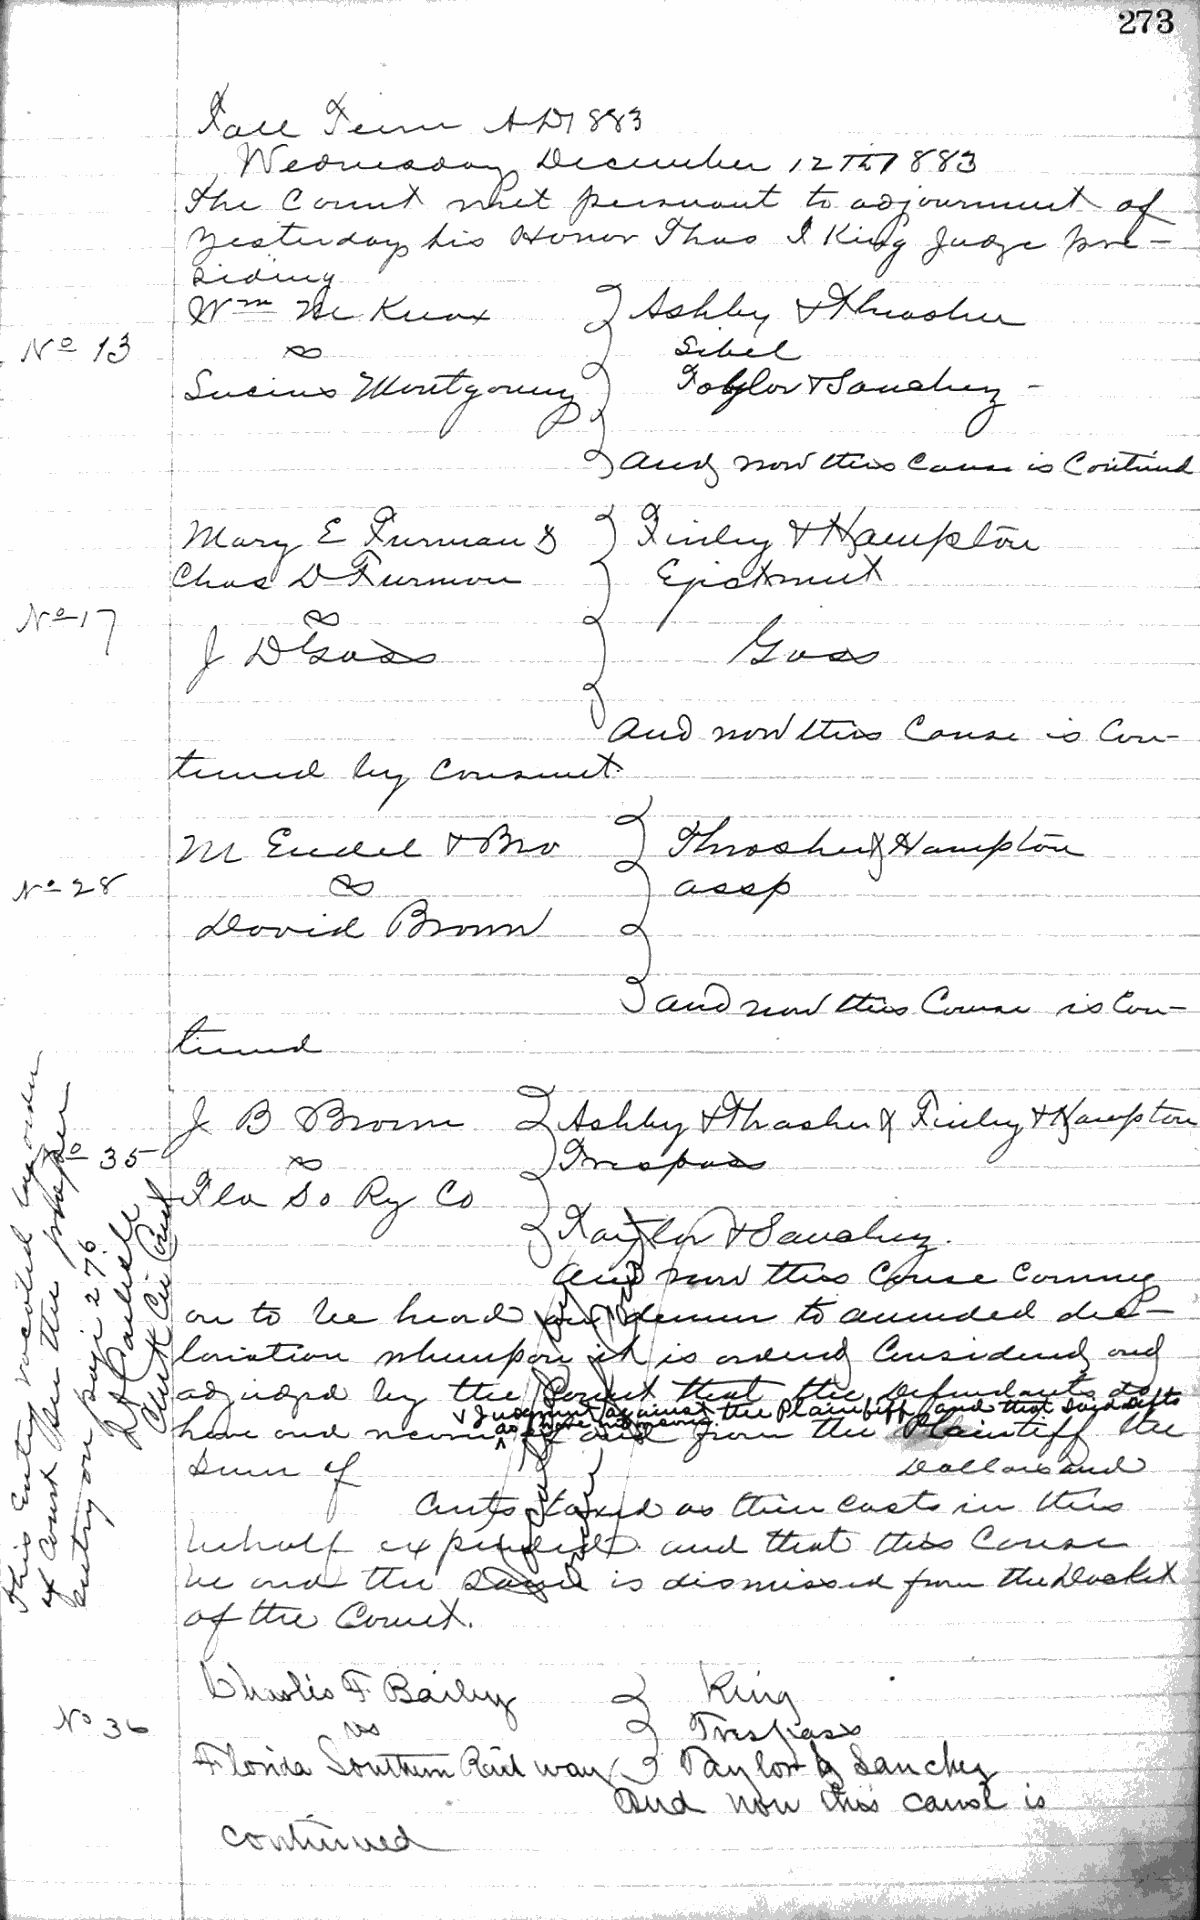 273
Fall Term AD 1883
Wednesday December 12th 1883
The Court met persuant to adjournment of
yesterday his Honor Thos F King Judge pre-
siding
Wm McKnox Ashby & Thrasher
No 13 vs Libel
Lucius Montgomery Taylor & Sanchez -
and now this Cause is Contind
Mary E Furman & Finley & Hampton
Chas D Furman Ejectment
No 17 vs
J D Goss Goss
And now this Cause is Con-
tinued by Consent.
M Endel & Bro Thrasher & Hampton
No 28 vs assp
David Brown
and now this Cause is Con-
tinued
J B Brown Ashby & Thrasher & Finley & Hampton
No 35 vs Trespass
Fla So Ry Co
Taylor & Sanchez.
And now this Cause coming
on to be heard on demur to amended dec-
laration whereupon it is ordered Considered and
adjudged by the Court that the Defendants do
Judgment against the Plaintiff and that said Defts
have and recover of and from the Plaintiff the
Sum of Dollars and
Cents taxed as their costs in this
behalf expended and that this Cause
be and the same is dismissed from the Docket
of the Court.
This Entry vacated by order
of Court see the proper
Entry on page 276
Clerk Cir Court
Charles F. Bailey King
No 36 vs Trespass
Florida Southern Railway Taylor & Sanchez
And now this cause is
continued